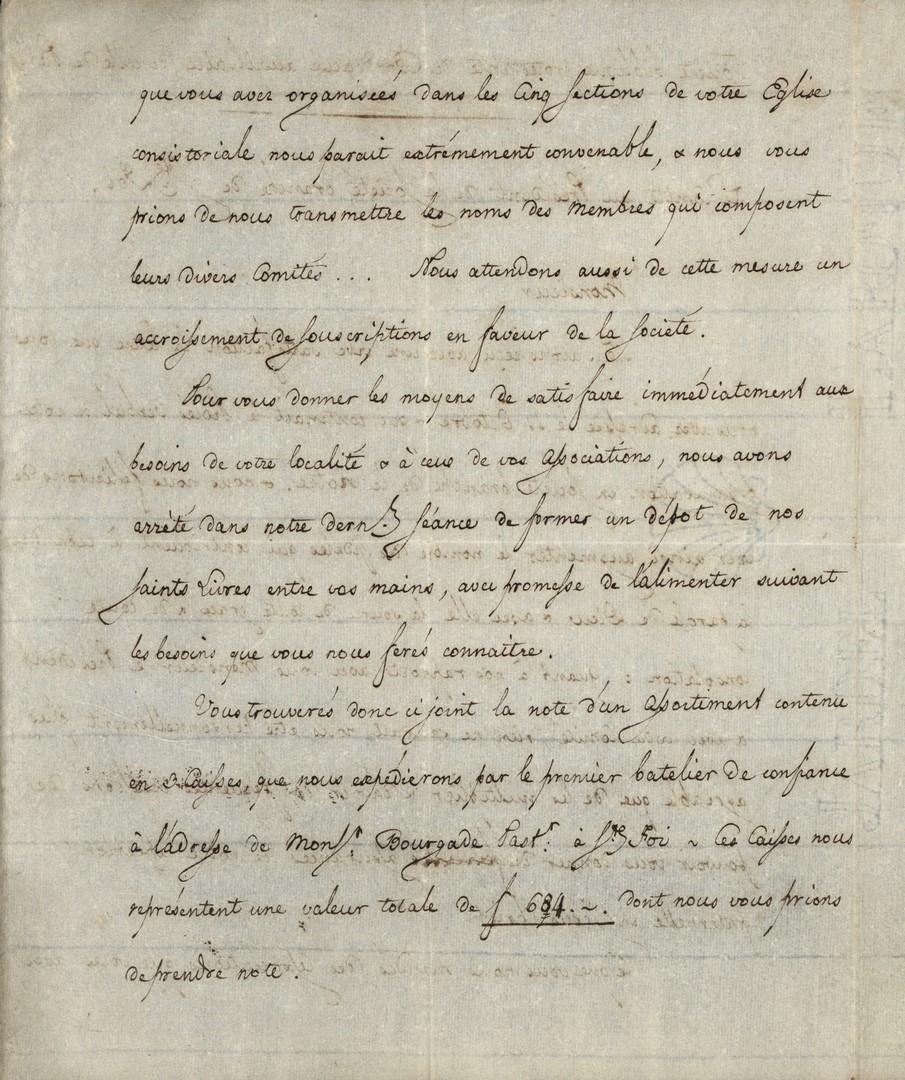 que vous avez organisées dans les Cinq Sections de votre Eglise
consistoriale nous parait extrémement convenable, & nous vous
prions de nous transmettre les noms des membres qui composent
leurs divers Comités... Nous attendons aussi de cette mesure un
accroissement de souscriptions en faveur de la Société.
Pour vous donner les moyens de satisfaire immédiatement aux
besoins de votre localité & à ceux de vos Associations, nous avons
arrêté dans notre dern.e séance de former un dépot de nos
saints Livres entre vos mains, avec promesse de l'alimenter suivant
les besoins que vous nous ferés connaitre.
Vous trouverés donc ci joint la note d'un Assortiment contenu
en 3 Caisses, que nous expédierons par le premier batelier de confiance
à l'adresse de Monsr. Bourgade Pastr. à Ste Foi ~ Ces Caisses nous
représentent une valeur totale de f ~. dont nous vous prions
de prendre note.